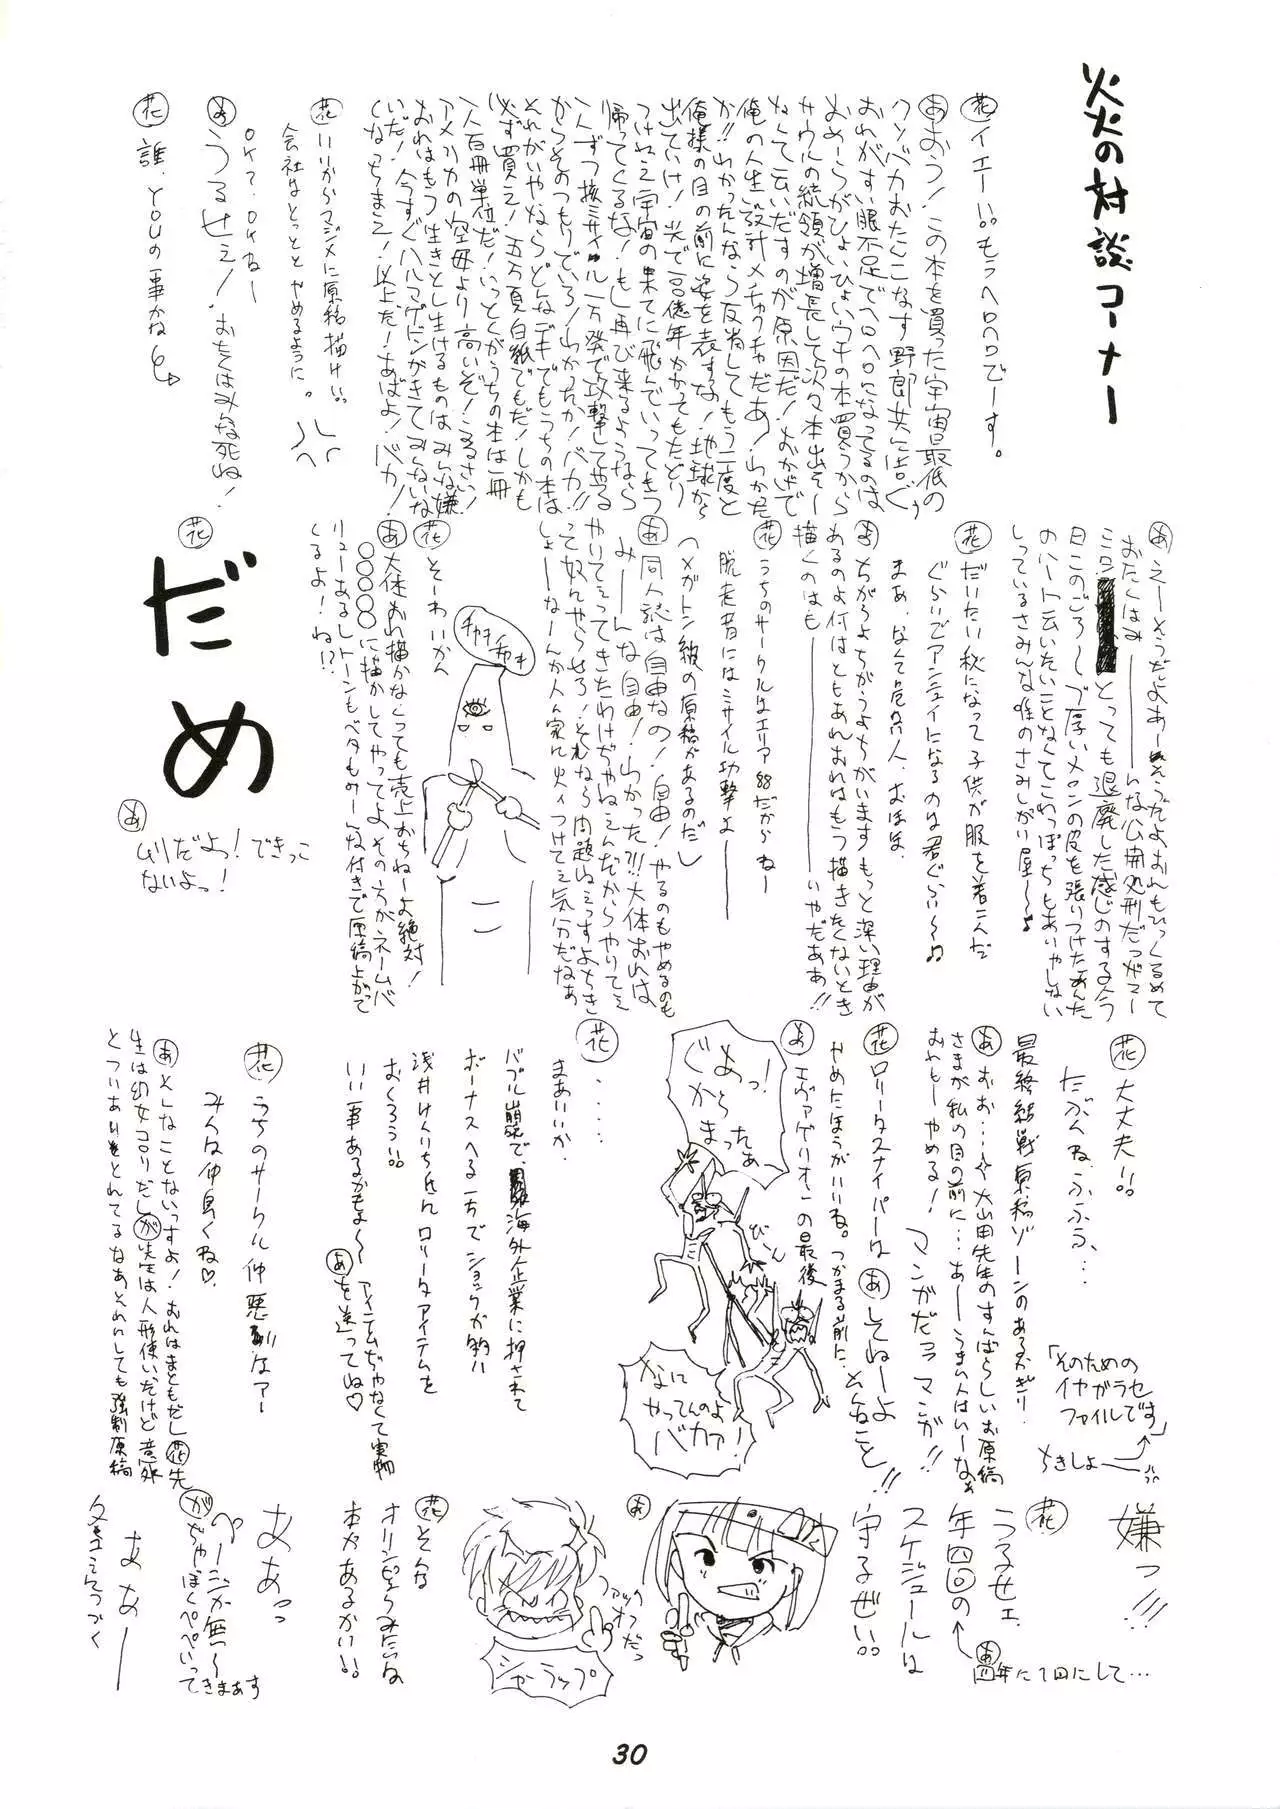 炎の対談コーナー
花 イエーい。もうヘロヘロでーす。
あ およう！この本を買った宇宙最低の
クソバカおたんこなす野郎共に告ぐぅ
おれがすい眠不足でヘロヘロになってるのは
おめーらがひょいひょいウチの本買うから
サウルの統領が増長して次々本出そー
なんて云いだすのが原因だ！おかげで
俺の人生設計メチャクチャだあ！わかった
か!!わかったんなら反省してもう二度と
俺様の目の前に姿を表すな！地球から
出ていけ！光で百億年かかってもたどり
つけねえ宇宙の果てに飛んでいってもう
帰ってくるな！もし再び来るようなら
一人ずつ核ミサイル一万発で攻撃してやる
からそのつもりでいろ！わかったか！バカ!!
それがいやならどんなデキでもうちの本は
必ず買え！五万頁白紙でもだ！しかも
一人百冊単位だ！いっとくがうちの本は一冊
アメリカの空母より高いぞ！うるさい！
おれはもう生きとし生けるものはみんな嫌
いだ！今すぐハルマゲドンがきてみんないな
くなっちまえ！以上だ！あばよ！バカ！
花 いいからマジメに原稿描けい。
会社はとっととやめるように。
OK？．OKねー
あ うるせえ！おたくはみんな死ね！
花 誰．YOUの事かね
あ えーそうだよあーそうだよおれもひっくるめて
おたくはみーーんな公開処刑だっがマー
ミロン とっても退廃した感じのする今
日このごろーぶ厚いメロンの皮を張りつけたあんた
のハート云いたいことなくてこわっぽっちもあいやしない
しっているさみんな唯のさみしがい屋〜♪
花 だいたい秋になって子供が服を着こんだ
ぐらいでアンニュイになるのは君ぐらい〜♪
まあ、なんて凡人．おほほ．
あ ちがうよちがうよちがいますもっと深い理由が
あるのよ何はともあれおれはもう描きたくないとき
描くのはもーーーーーーいやだああ!!
花 うちのサークルはエリア88だからねー
脱走者にはミサイル攻撃よーーー
（メガトン級の原稿があるのだ）
あ 同人誌は自由なの！自由！やるのもやめるのも
みーーんな自由！わかった?!!大体おれは
やりてえってきたわけぢゃねえんだからやりてえ
って奴んやらせろ！それなら問題ねえっすよちき
しょーなーんか人ん家に火ィつけてえ気分だなあ
花 そーわいかん
あ 大体おれ描かなくっても売上おちねーよ絶対！
〇〇〇〇に描かしてやってよ、その方がネームバ
リューあるしトーンもベタもみーんな付きで原稿上がって
くるよ！ね!?
チャキ チャキ
花 だめ
あ ムリだよっ！できっこ
ないよっ！
花 大丈夫!!
たぶんね．ふふう、…
最終結戦原稿ゾーンのあるかぎり．
「そのための
イヤガラセ
ファイルです」
ちきしょー
あ おお…大山田先生のすんばらしいお原稿
さまが私の目の前に…あーうまい人はいーなぁ
おれもーやめる！
マンガだってマンガ!!
花 ロリータスナイパーは あ してねーよ
やめたほうがいいね。つかまる前に、んなこと!!
あ エヴァゲリオーの最後
ぐあっ！
からまったぁ
びーん
なに
やってんのよ
バカァ！
花 ．．．．．
まあいいか．
バブル崩壊で、海外企業に押されて
ボーナスへる一方でショックが多い
浅井けんいち氏んロリータアイテムを
おくろう!!
いい事あるかもよ〜アイテムぢゃなくて実物
あ を送ってね♡
花 うちのサークル仲悪 なァー
みんな仲良くね♡．
あ そんなことないっすよ！おれはまともだし 花 先
生は幼女コロリだし が 先生は人形使いだけど意外
とつりあいもとれてるなあそれにしても強制原稿
嫌っ!!!
花 うるせェ
年四回の
あ 年に1回にして…
スケジュールは
守るぜい!!
あ ファックオフだっ
シャーラップ
花 そんな
オリンピックみたいな
本があるかい!!
ああっ
ペーージが無〜
が ぢゃーぼくペペいって
きまぁす
あなーーー
30